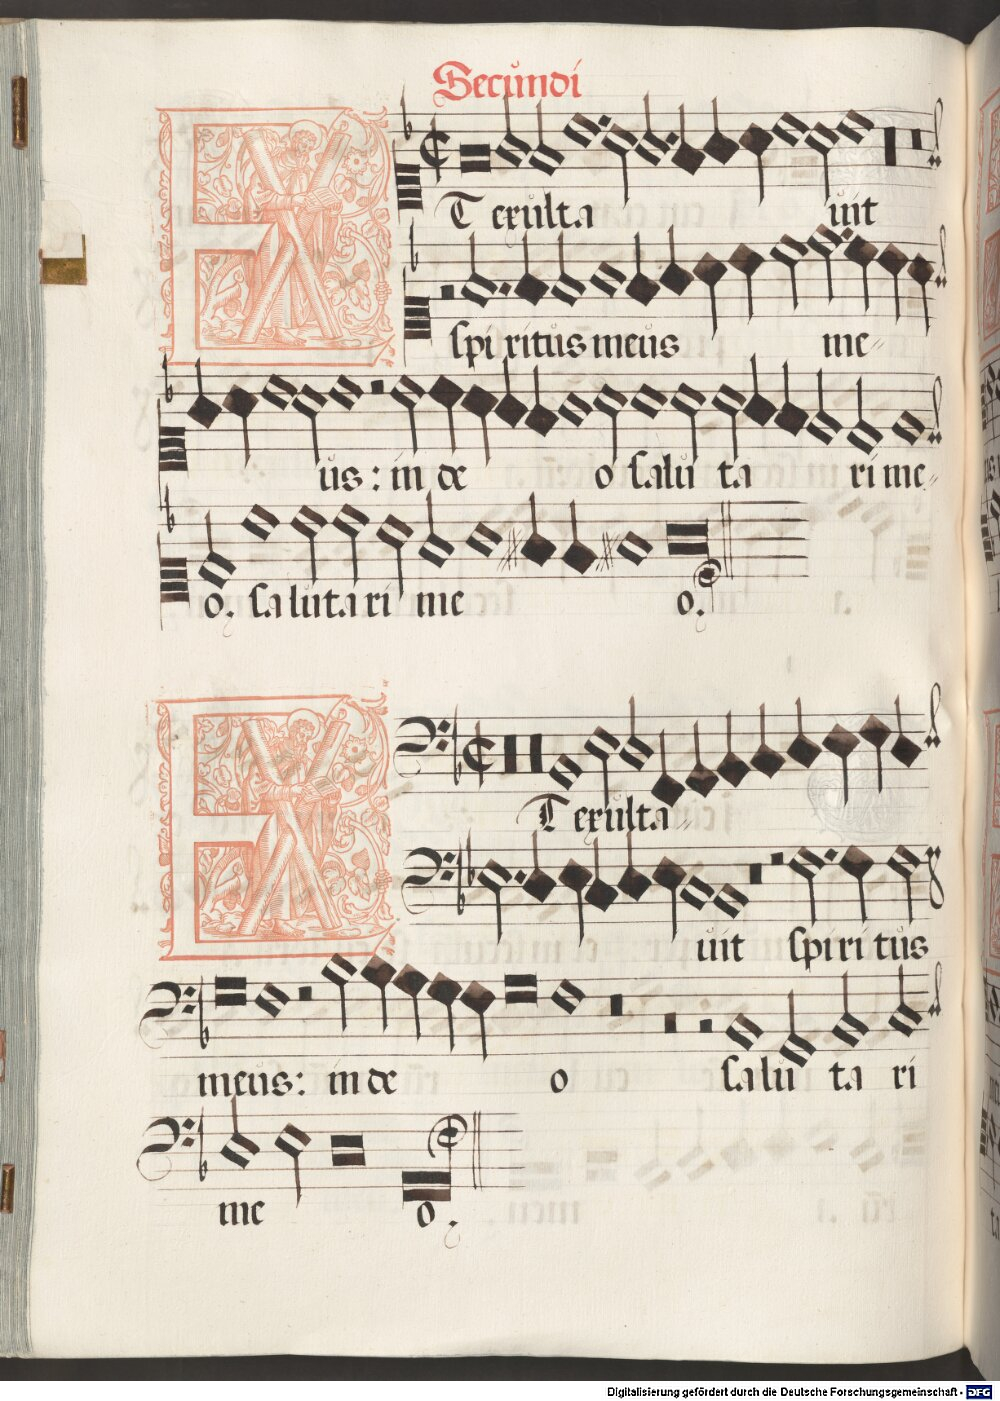 Secundi
ET exulta uit
spiritus meus me
us: in de o saluta ri me
o. salutari me o.
ET exulta
uit spiritus
meus: in de o saluta ri
me o.
Digitalisierung gefördert durch die Deutsche Forschungsgemeinschaft - DFG